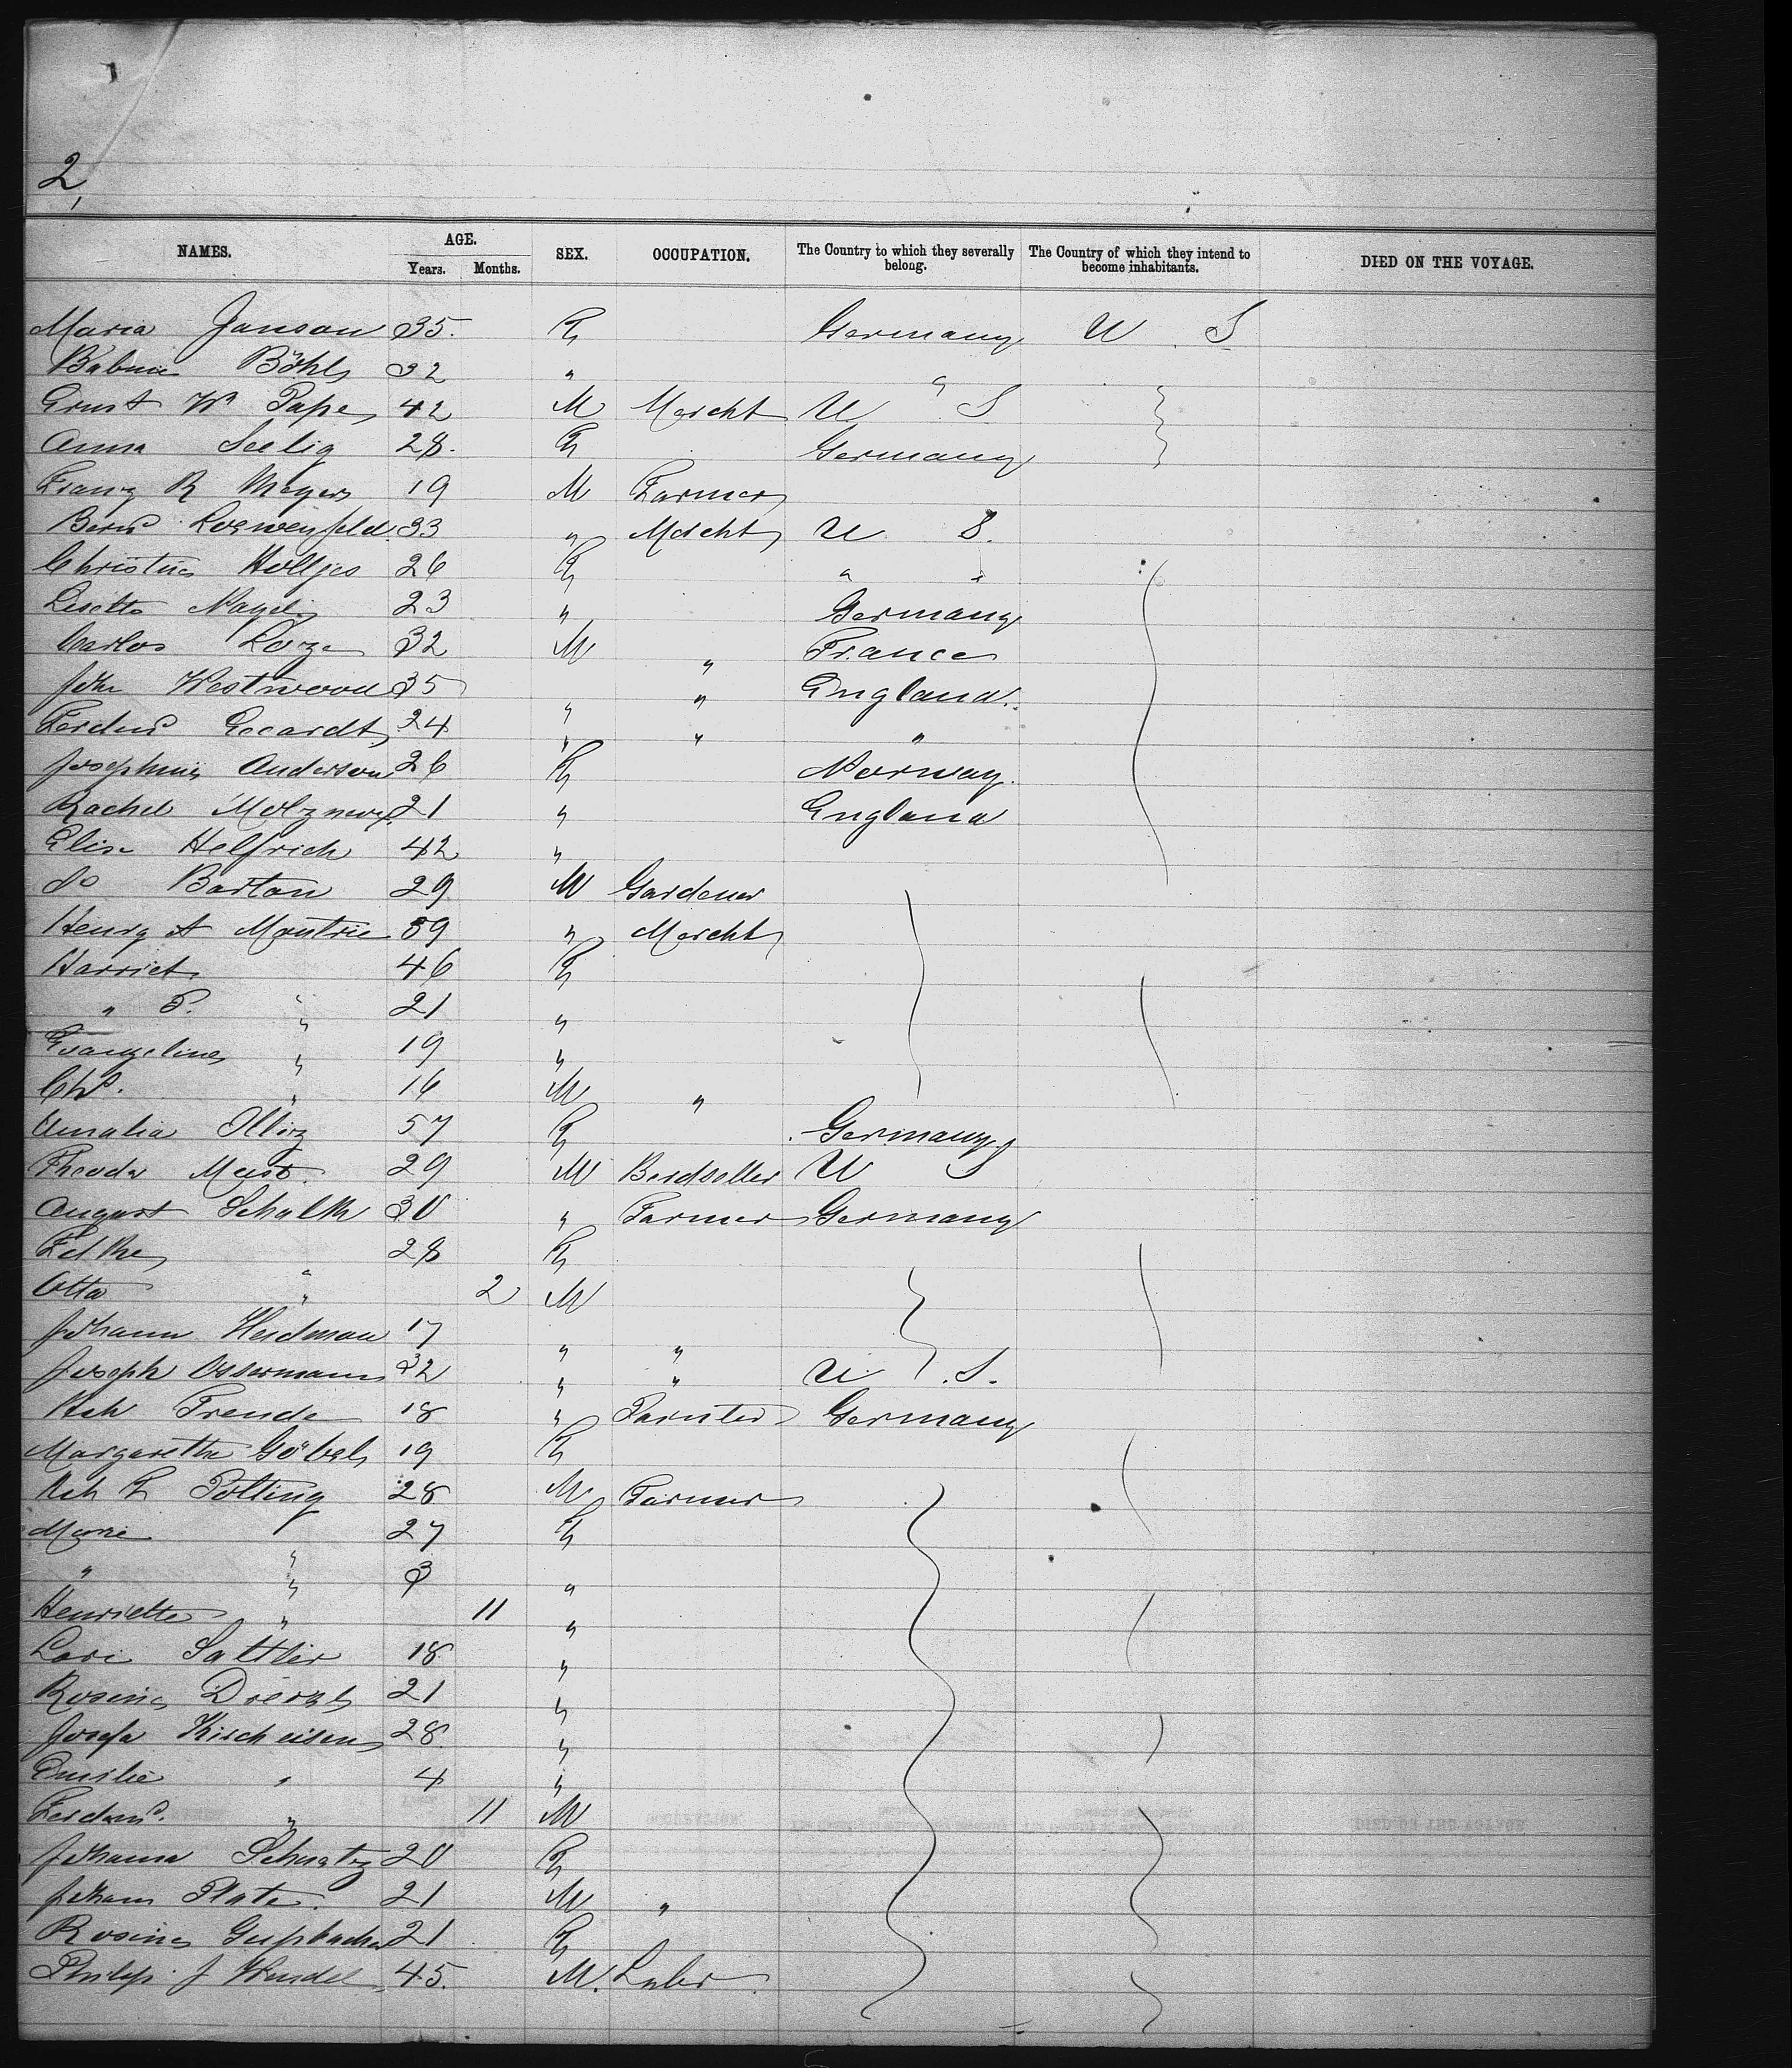 2,
NAMES. AGE. Years. Months. SEX. OCCUPATION. The Country to which they severally belong. The Country of which they intend to become inhabitants. DIED ON THE VOYAGE.
Maria Janson 35. F Germany U S
Böhls 32 " "
Ernst Wm Pape 42 M Mercht U S
Anna Seelig 28. F Germany
Franz R Meyers 19 M Farmer
Bernd Loewenfeld 33 " Mercht U S.
Christine Holljes 26 F " "
Lisette Nagel 23 " Germany
Carlos 32 M " France
John Westwood 35 " " England.
Ferdnd 24 " " "
Josephine Anderson 26 F Norway.
Rachel 21 " England
Elise Helfrich 42 "
do Barton 29 M Gardener
Henry A Moutrie 59 " Mercht
Harriet 46 F
" " 21 "
Evangeline " 19 "
Chs. " 16 M "
Amalia 57 F Germany
Theodr 29 M U S
August Schalk 30 " Farmer Germany
" 28 F
Otto " 2 M
Johann Heideman 17 " "
Joseph Ossermann 32 " " U S.
Hch Frende 18 " Germany
Margarethe Göbels 19 F
Hch F Polting 28 M Farmer
Marie " 27 F
" " 3 "
Henriette " 11 "
Sattler 18 "
Rosine 21 "
Josefa Kircheisen 28 "
Emilie " 4 "
Ferdnd. " 11 M
Johanna 20 F
Johann Plate. 21 M "
Rosine 21 F
Philip J Wendel 45. M. Labr